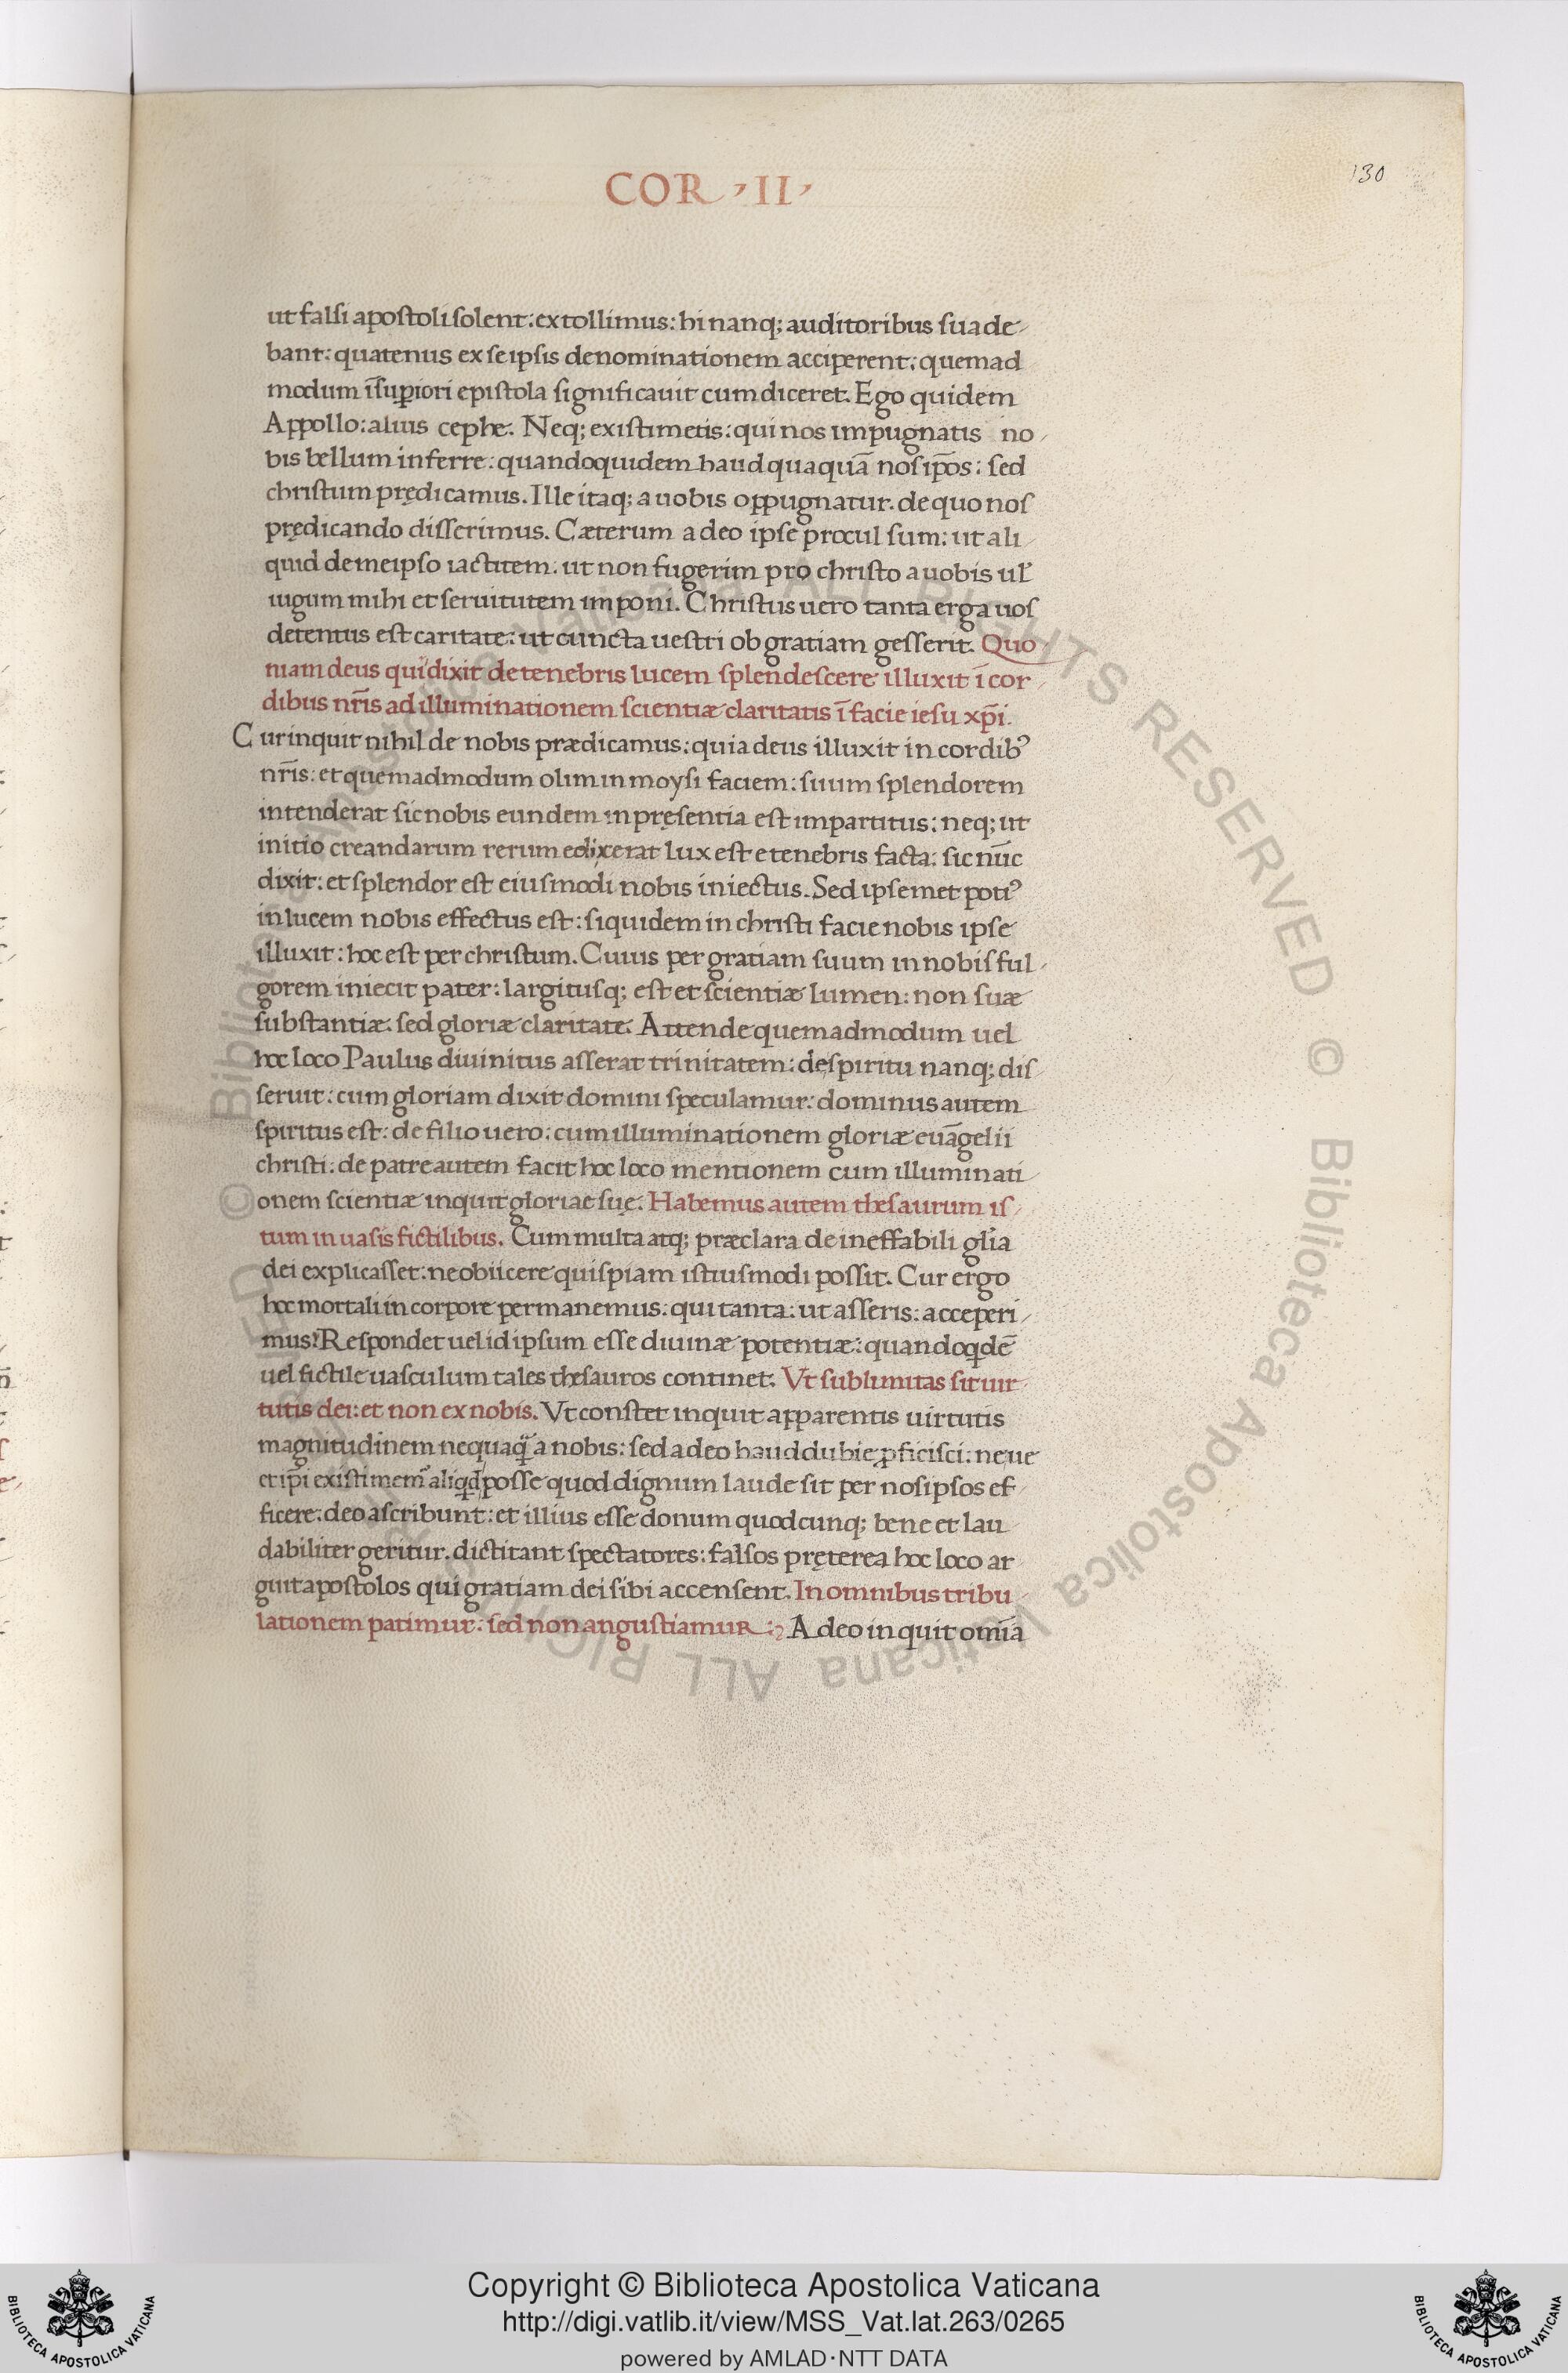 COR · II ·
130
ut falsi apostoli solent: extollimus: hi nanq; auditoribus suade
bant: quatenus ex se ipsis denominationem acciperent: quemad
modum ī sup̱iori epistola significavit cum diceret. Ego quidem
Appollo: alius cephe. Neq; existimetis: qui nos impugnatis no
bis bellum inferre: quandoquidem haud quaquā nos ip̄os: sed
christum prędicamus. Ille itaq; a uobis oppugnatur. de quo nos
prędicando disserimus. Cæterum adeo ipse procul sum: ut ali
quid de meipso iactitem. ut non fugerim pro christo a uobis ul̄
iugum mihi et seruitutem imponi. Christus uero tanta erga uos
detentus est caritate: ut cuncta uestri ob gratiam gesserit. Quo
niam deus qui dixit de tenebris lucem splendescere illuxit ī cor
dibus nr̄is ad illuminationem scientiæ claritatis ī facie iesu xp̄i.
Cur inquit nihil de nobis prædicamus: quia deus illuxit in cordibꝰ
nr̄is: et quemadmodum olim in moysi faciem: suum splendorem
intenderat sic nobis eundem in pręsentia est impartitus: neq; ut
initio creandarum rerum edixerat lux est e tenebris facta: sic nūc
dixit: et splendor est eiusmodi nobis iniectus. Sed ipsemet potiꝰ
in lucem nobis effectus est: siquidem in christi facie nobis ipse
illuxit: hoc est per christum. Cuius per gratiam suum in nobis ful
gorem iniecit pater: largitusq; est et scientiæ lumen: non suæ
substantiæ: sed gloriæ claritate. Attende quemadmodum uel
hoc loco Paulus diuinitus asserat trinitatem: de spiritu nanq; dis
seruit: cum gloriam dixit domini speculamur: dominus autem
spiritus est: de filio uero: cum illuminationem gloriæ euāgelii
christi: de patre autem facit hoc loco mentionem cum illuminati
onem scientiæ inquit gloriae suę. Habemus autem thesaurum is
tum in uasis fictilibus. Cum multa atq; præclara de ineffabili gl̄ia
dei explicasset: ne obiicere quispiam istiusmodi possit. Cur ergo
hoc mortali in corpore permanemus: qui tanta: ut asseris: acceperi
mus? Respondet uel id ipsum esse diuinæ potentiæ: quandoqdē
uel fictile uasculum tales thesauros continet. Vt sublimitas sit uir
tutis dei: et non ex nobis. Vt constet inquit apparentis uirtutis
magnitudinem nequaq̄ a nobis: sed a deo haud dubie ꝓficisci: neue
et ip̄i existimemꝰ aliqd posse quod dignum laude sit per nosipsos ef
ficere: deo ascribunt: et illius esse donum quodcunq; bene et lau
dabiliter geritur. dictitant spectatores: falsos pręterea hoc loco ar
guit apostolos qui gratiam dei sibi accensent. In omnibus tribu
lationem patimur: sed non angustiamuR. A deo inquit omīa
© Biblioteca Apostolica Vaticana ALL RIGHTS RESERVED
Copyright © Biblioteca Apostolica Vaticana
http://digi.vatlib.it/view/MSS_Vat.lat.263/0265
powered by AMLAD·NTT DATA
BIBLIOTECA APOSTOLICA VATICANA
BIBLIOTECA APOSTOLICA VATICANA